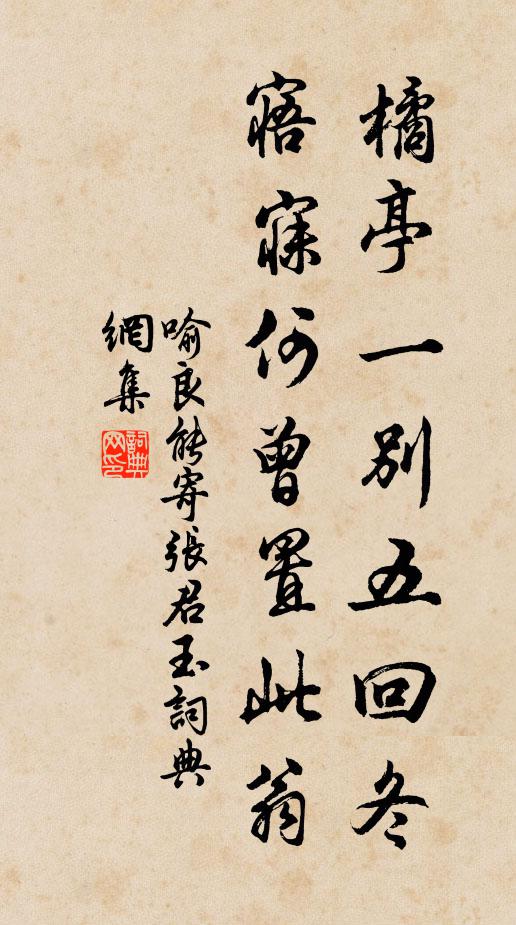 橘亭一別五回冬
寤寐何曾置此翁
喻良能寄張君玉詞典
網集
詞典
网印